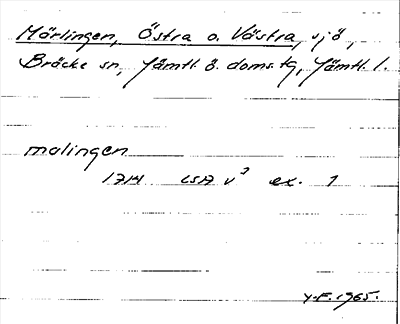 Mörlingen, Östra o. Västra, sjö,
Bräcke sn, Jämtl. ö. doms. tg, Jämtl. l.
malingen
1714 LSA v³ ex. 1
Y-F. 1965.